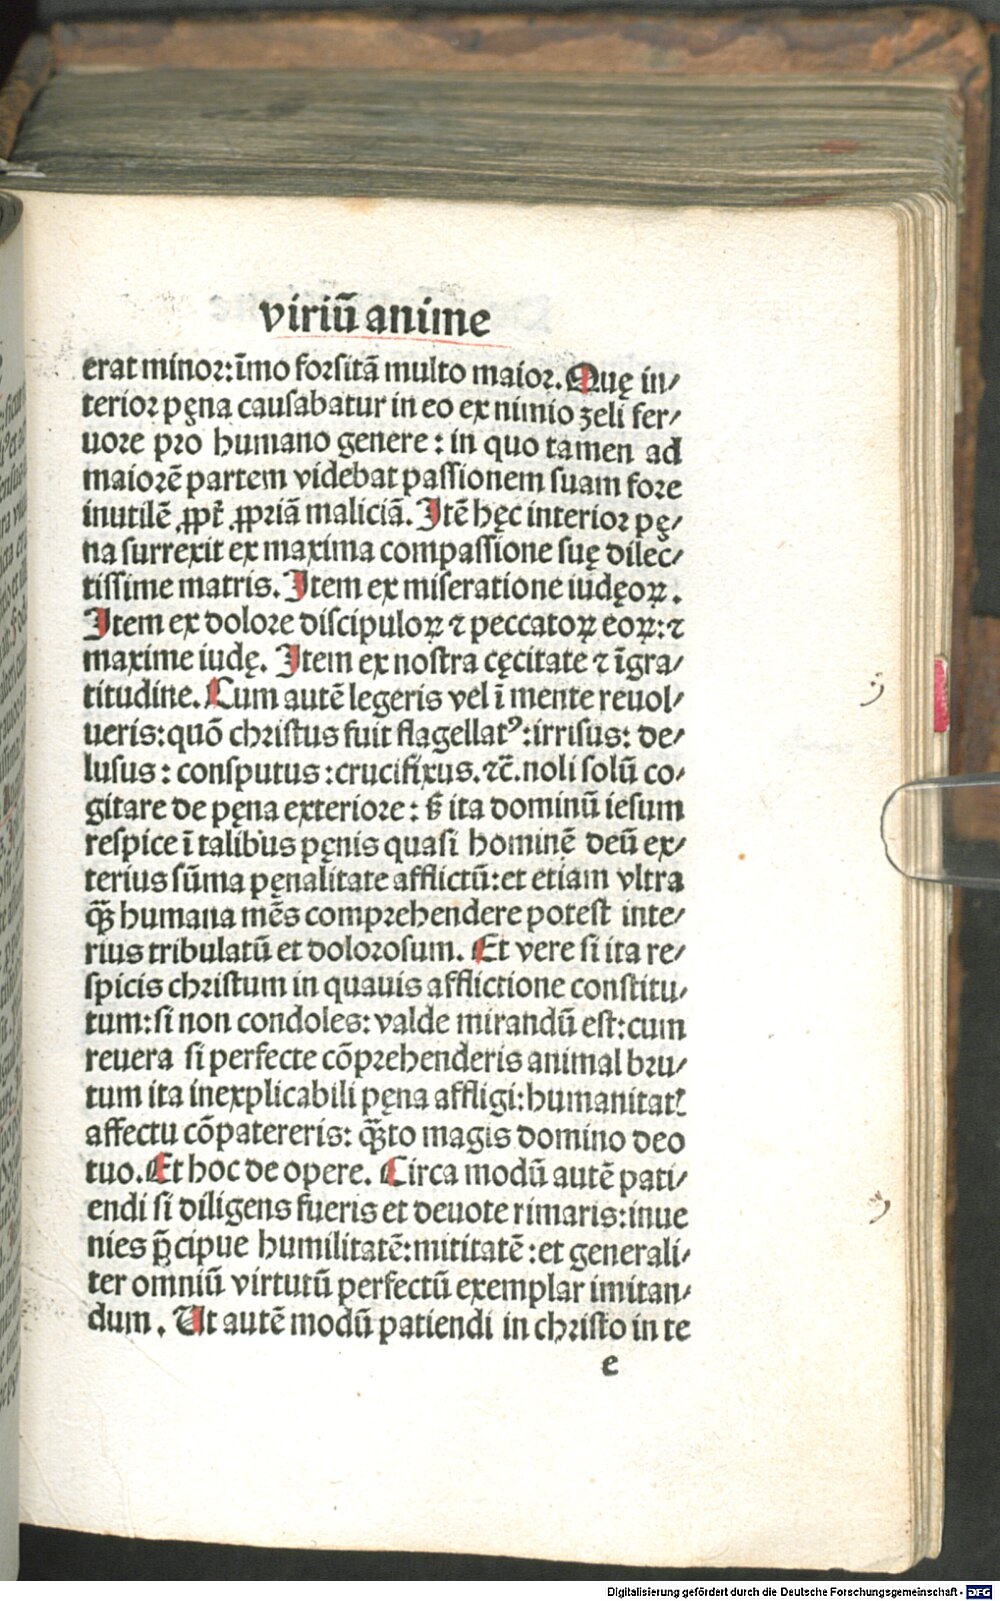 viriū anime
erat minor: īmo forsitā multo maior. Quę in⸗
terior pęna causabatur in eo ex nimio zeli fer⸗
uore pro humano genere: in quo tamen ad
maiorē partem videbat passionem suam fore
inutilē ꝓpt̄ ꝓpriā maliciā. Itē hęc interior pę⸗
na surrexit ex maxima compassione suę dilec⸗
tissime matris. Item ex miseratione iudęoꝝ.
Item ex dolore discipuloꝝ ⁊ peccatoꝝ eoꝝ: ⁊
maxime iudę. Item ex nostra cęcitate ⁊ īgra⸗
titudine. Cum autē legeris vel ī mente reuol⸗
ueris: quō christus fuit flagellatꝰ: irrisus: de⸗
lusus: consputus: crucifixus. ⁊c̄. noli solū co⸗
gitare de pęna exteriore: s̄ ita dominū iesum
respice ī talibus pęnis quasi hominē deū ex⸗
terius sūma pęnalitate afflictū: et etiam vltra
qȝ̄ humana mēs comprehendere potest inte⸗
rius tribulatū et dolorosum. Et vere si ita re⸗
spicis christum in quauis afflictione constitu⸗
tum: si non condoles: valde mirandū est: cum
reuera si perfecte cōprehenderis animal bru⸗
tum ita inexplicabili pęna affligi: humanitatꝭ
affectu cōpatereris: qȝ̄to magis domino deo
tuo. Et hoc de opere. Circa modū autē pati⸗
endi si diligens fueris et deuote rimaris: inue
nies p̄cipue humilitatē: mititatē: et generali⸗
ter omniū virtutū perfectū exemplar imitan⸗
dum. Ut autē modū patiendi in christo in te
e
Digitalisierung gefördert durch die Deutsche Forschungsgemeinschaft - DFG